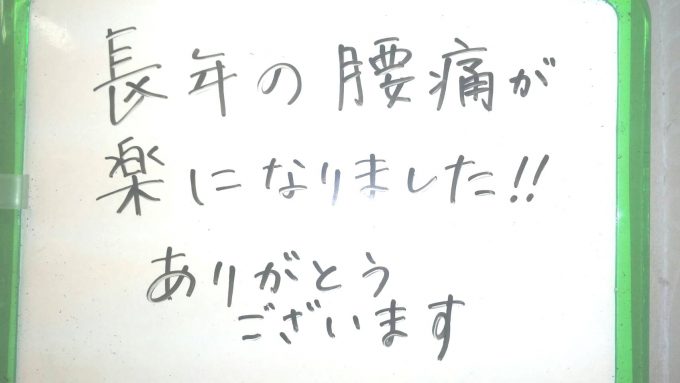 長年の腰痛が
楽になりました!!
ありがとう
ございます